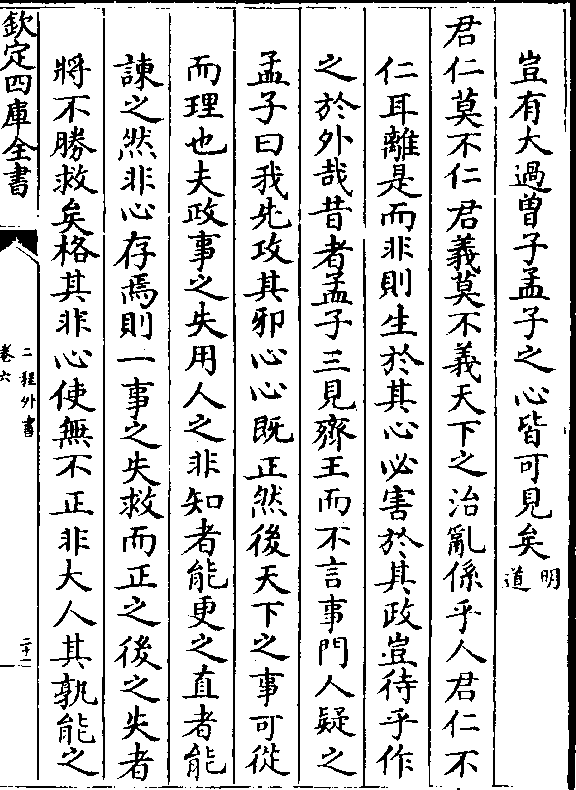 豈有大過曽子孟子之心皆可見矣明道
君仁莫不仁君義莫不義天下之治亂係乎人君仁不
仁耳離是而非則生於其心必害於其政豈待乎作
之於外哉昔者孟子三見齊王而不言事門人疑之
孟子曰我先攻其邪心心既正然後天下之事可從
而理也夫政事之失用人之非知者能更之直者能
諫之然非心存焉則一事之失救而正之後之失者
將不勝救矣格其非心使無不正非大人其孰能之
欽定四庫全書
二程外書
卷六
二十一